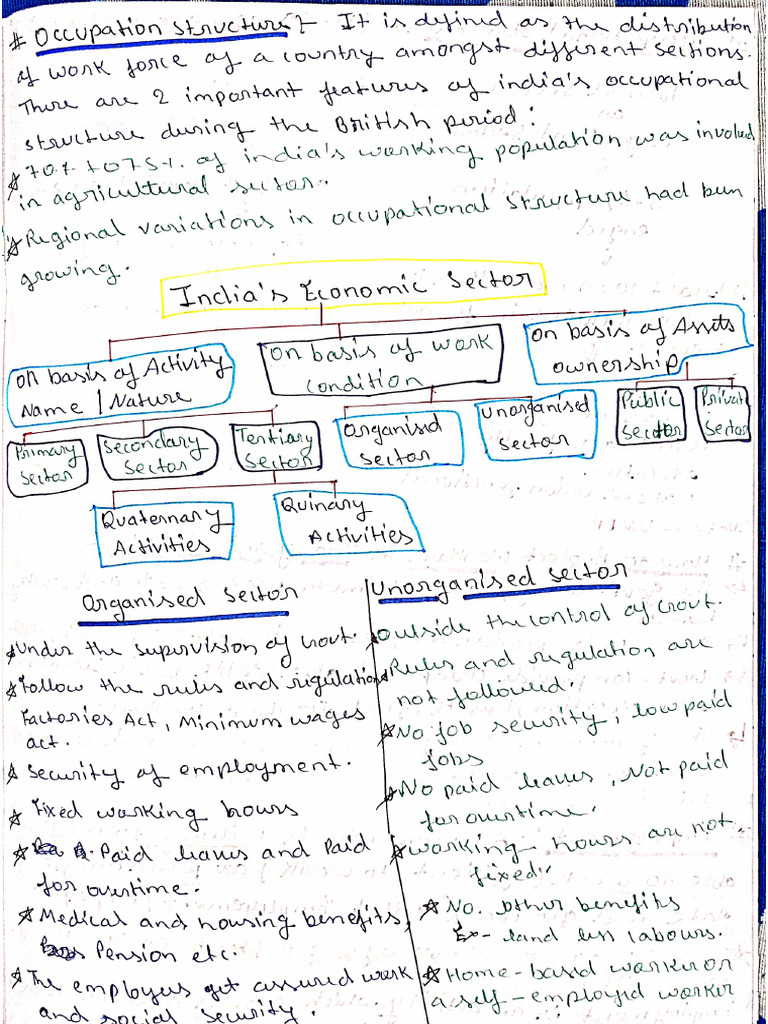 # Occupation structure :- It is defined as the distribution
of work force of a country amongst different sections.
There are 2 important features of india's occupational
structure during the British period :
* 70% to 75% of india's working population was involved
in agricultural sector.
* Regional variations in occupational structure had been
growing.
India's Economic Sector
On basis of Activity
Name / Nature
On basis of work
condition
On basis of Assets
ownership
Primary
Sector
Secondary
Sector
Tertiary
Sector
Organised
sector
unorganised
sector
Public
sector
Private
Sector
Quaternary
Activities
Quinary
Activities
Organised Sector
* Under the supervision of Govt.
* Follow the rules and regulations
Factories Act, Minimum wages
act.
* Security of employment.
* Fixed working hours
* Paid leaves and Paid
for overtime.
* Medical and housing benefits,
Pension etc.
* The employees get assured work
and social security.
Unorganised sector
* Outside the control of Govt.
* Rules and regulation are
not followed.
* No job security, low paid
jobs
* No paid leaves, Not paid
for overtime.
* Working hours are not
fixed.
* No. other benefits
Ex- land less labours.
* Home-based worker or
a self-employed worker